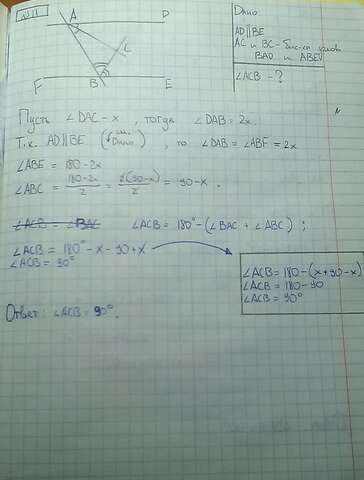 N11
A D
C
F B E
Дано
AD∥BE
AC и BC - бис-сы углов
BAD и ABE
∠ACB - ?
Пусть ∠DAC - x, тогда ∠DAB = 2x.
Т.к. AD∥BE (Дано), то ∠DAB = ∠ABF = 2x
∠ABE = 180 - 2x
∠ABC = 180-2x/2 = 2(90-x)/2 = 90-x.
∠ACB = ∠BAC ∠ACB = 180° - (∠BAC + ∠ABC);
∠ACB = 180° - x - 90 + x
∠ACB = 90°
∠ACB = 180 - (x + 90 - x)
∠ACB = 180 - 90
∠ACB = 90°
Ответ: ∠ACB = 90°.